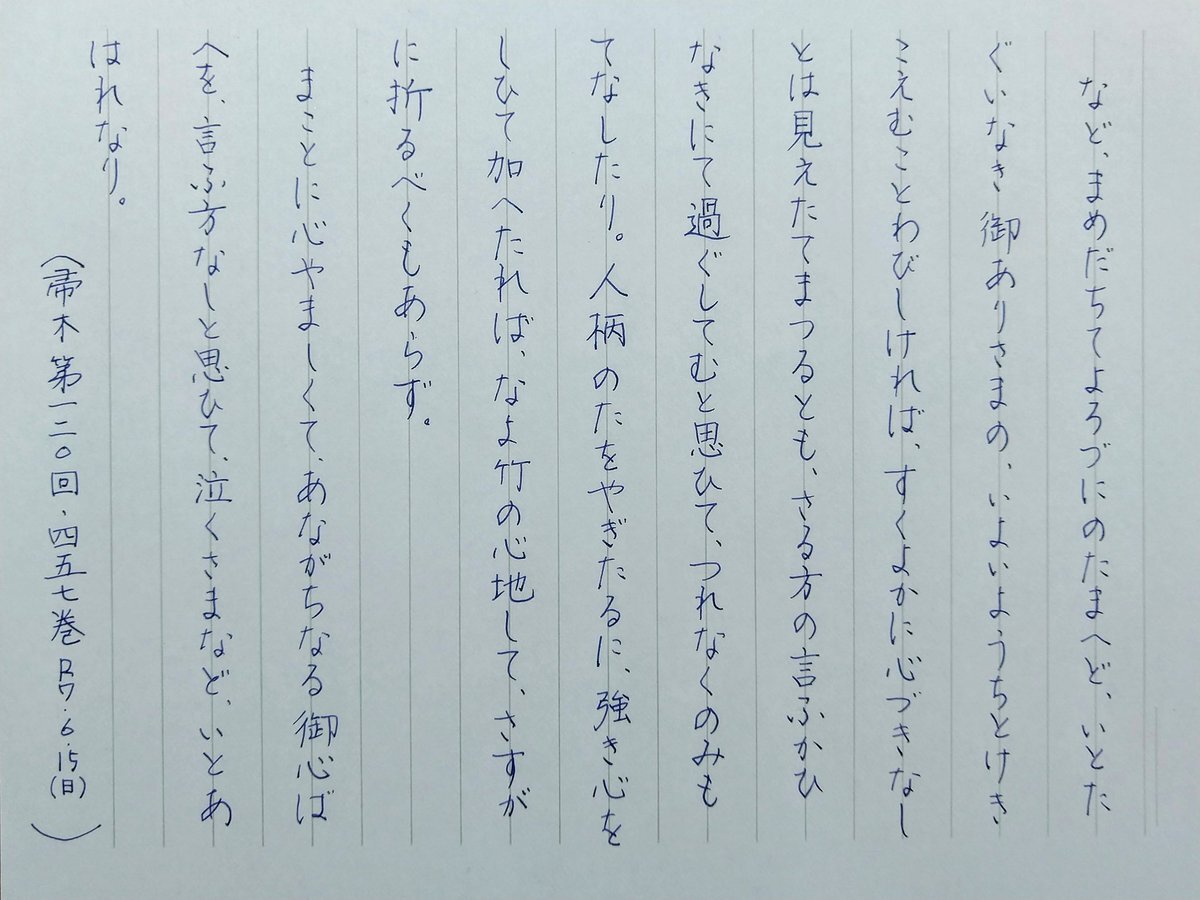 など、まめだちてよろづにのたまへど、いとた
ぐいなき御ありさまの、いよいようちとけき
こえむことわびしければ、すくよかに心づきなし
とは見えたてまつるとも、さる方の言ふかひ
なきにて過ぐしてむと思ひて、つれなくのみも
てなしたり。人柄のたをやぎたるに、強き心を
しひて加へたれば、なよ竹の心地して、さすが
に折るべくもあらず。
まことに心やましくて、あながちなる御心ば
へを、言ふ方なしと思ひて、泣くさまなど、いとあ
はれなり。
(帚木第一二〇回・四五七巻R7.6.15(日))